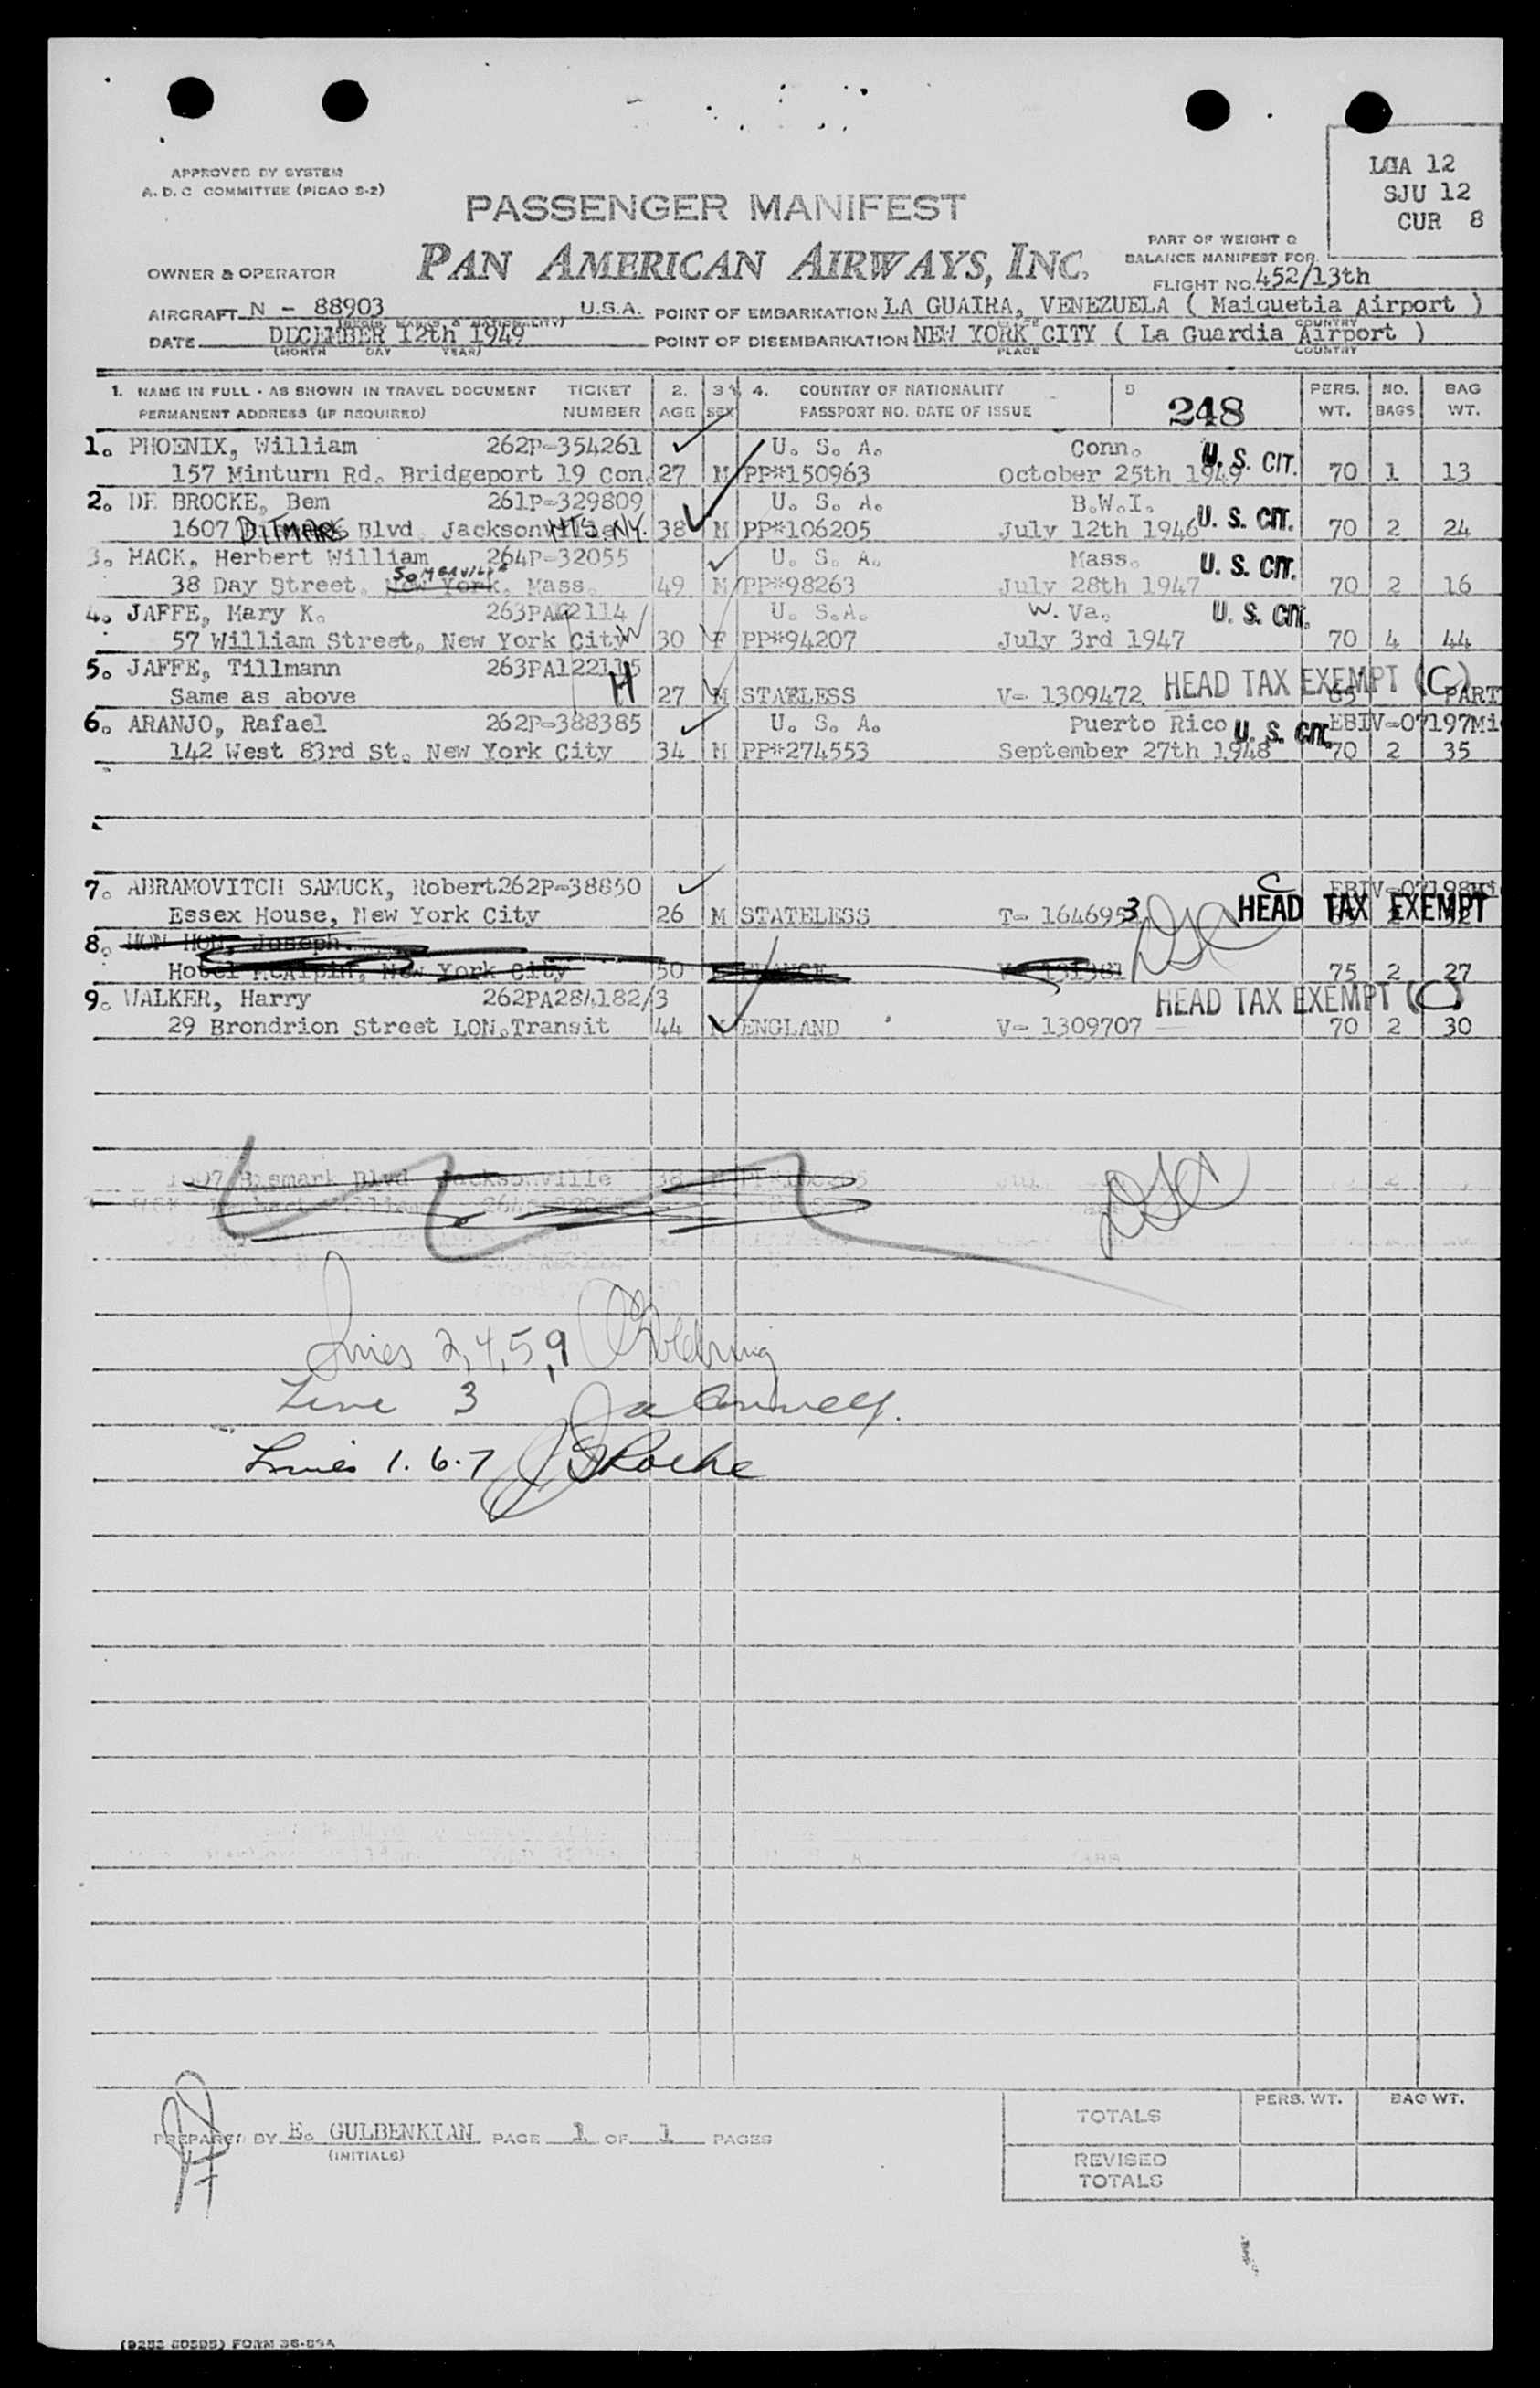 LGA 12
SJU 12
CUR 8
APPROVED BY SYSTEM
A. D. C COMMITTEE (PICAO S-2)
PASSENGER MANIFEST
PAN AMERICAN AIRWAYS, INC.
PART OF WEIGHT &
BALANCE MANIFEST FOR
FLIGHT NO. 452/13th
OWNER & OPERATOR
AIRCRAFT N - 88903 U.S.A. POINT OF EMBARKATION LA GUAIRA, VENEZUELA ( Maiquetia Airport )
DATE DECEMBER 12th 1949 POINT OF DISEMBARKATION NEW YORK CITY ( La Guardia Airport )
(MONTH DAY YEAR) PLACE COUNTRY
1. NAME IN FULL - AS SHOWN IN TRAVEL DOCUMENT TICKET 2. 3. 4. COUNTRY OF NATIONALITY 5 PERS. NO. BAG
PERMANENT ADDRESS (IF REQUIRED) NUMBER AGE SEX PASSPORT NO. DATE OF ISSUE 248 WT. BAGS WT.
1. PHOENIX, William 262P-354261 U. S. A. Conn. U. S. CIT.
157 Minturn Rd. Bridgeport 19 Con. 27 M PP#150963 October 25th 1949 70 1 13
2. DE BROCKE, Bem 261P-329809 U. S. A. B.W.I.
1607 DITMARS Blvd. Jackson HTS NY. 38 M PP#106205 July 12th 1946 U. S. CIT. 70 2 24
3. MACK, Herbert William 264P-32055 U. S. A. Mass. U. S. CIT.
38 Day Street, New York, SOMERVILLE Mass. 49 M PP#98263 July 28th 1947 70 2 16
4. JAFFE, Mary K. U. S.A. W. Va. U. S. CIT.
57 William Street, New York City 30 F PP#94207 July 3rd 1947 70 4 44
5. JAFFE, Tillmann 263PA122115 H HEAD TAX EXEMPT (C)
Same as above 27 M STATELESS V- 1309472 85 PART
6. ARANJO, Rafael 262P-388385 U. S. A. Puerto Rico U. S. CIT. EBIV-07197Mi
142 West 83rd St. New York City 34 M PP#274553 September 27th 1948 70 2 35
7. ABRAMOVITCH SAMUCK, Robert 262P-38850 C EBIV-07198Mi
Essex House, New York City 26 M STATELESS T- 1646953 HEAD TAX EXEMPT
8. HON HON, Joseph.
Hotel McAlpin, New York City 50 FRANCE 75 2 27
9. WALKER, Harry 262PA284182/3 HEAD TAX EXEMPT (C)
29 Brondrion Street LON. Transit 44 M ENGLAND V- 1309707 70 2 30
Blvd Jacksonville 38
Lines 2, 4, 5, 9
Line 3
Lines 1. 6. 7 Roche
PREPARED BY E. GULBENKIAN PAGE 1 OF 1 PAGES
(INITIALS)
PERS. WT. BAG WT.
TOTALS
REVISED
TOTALS